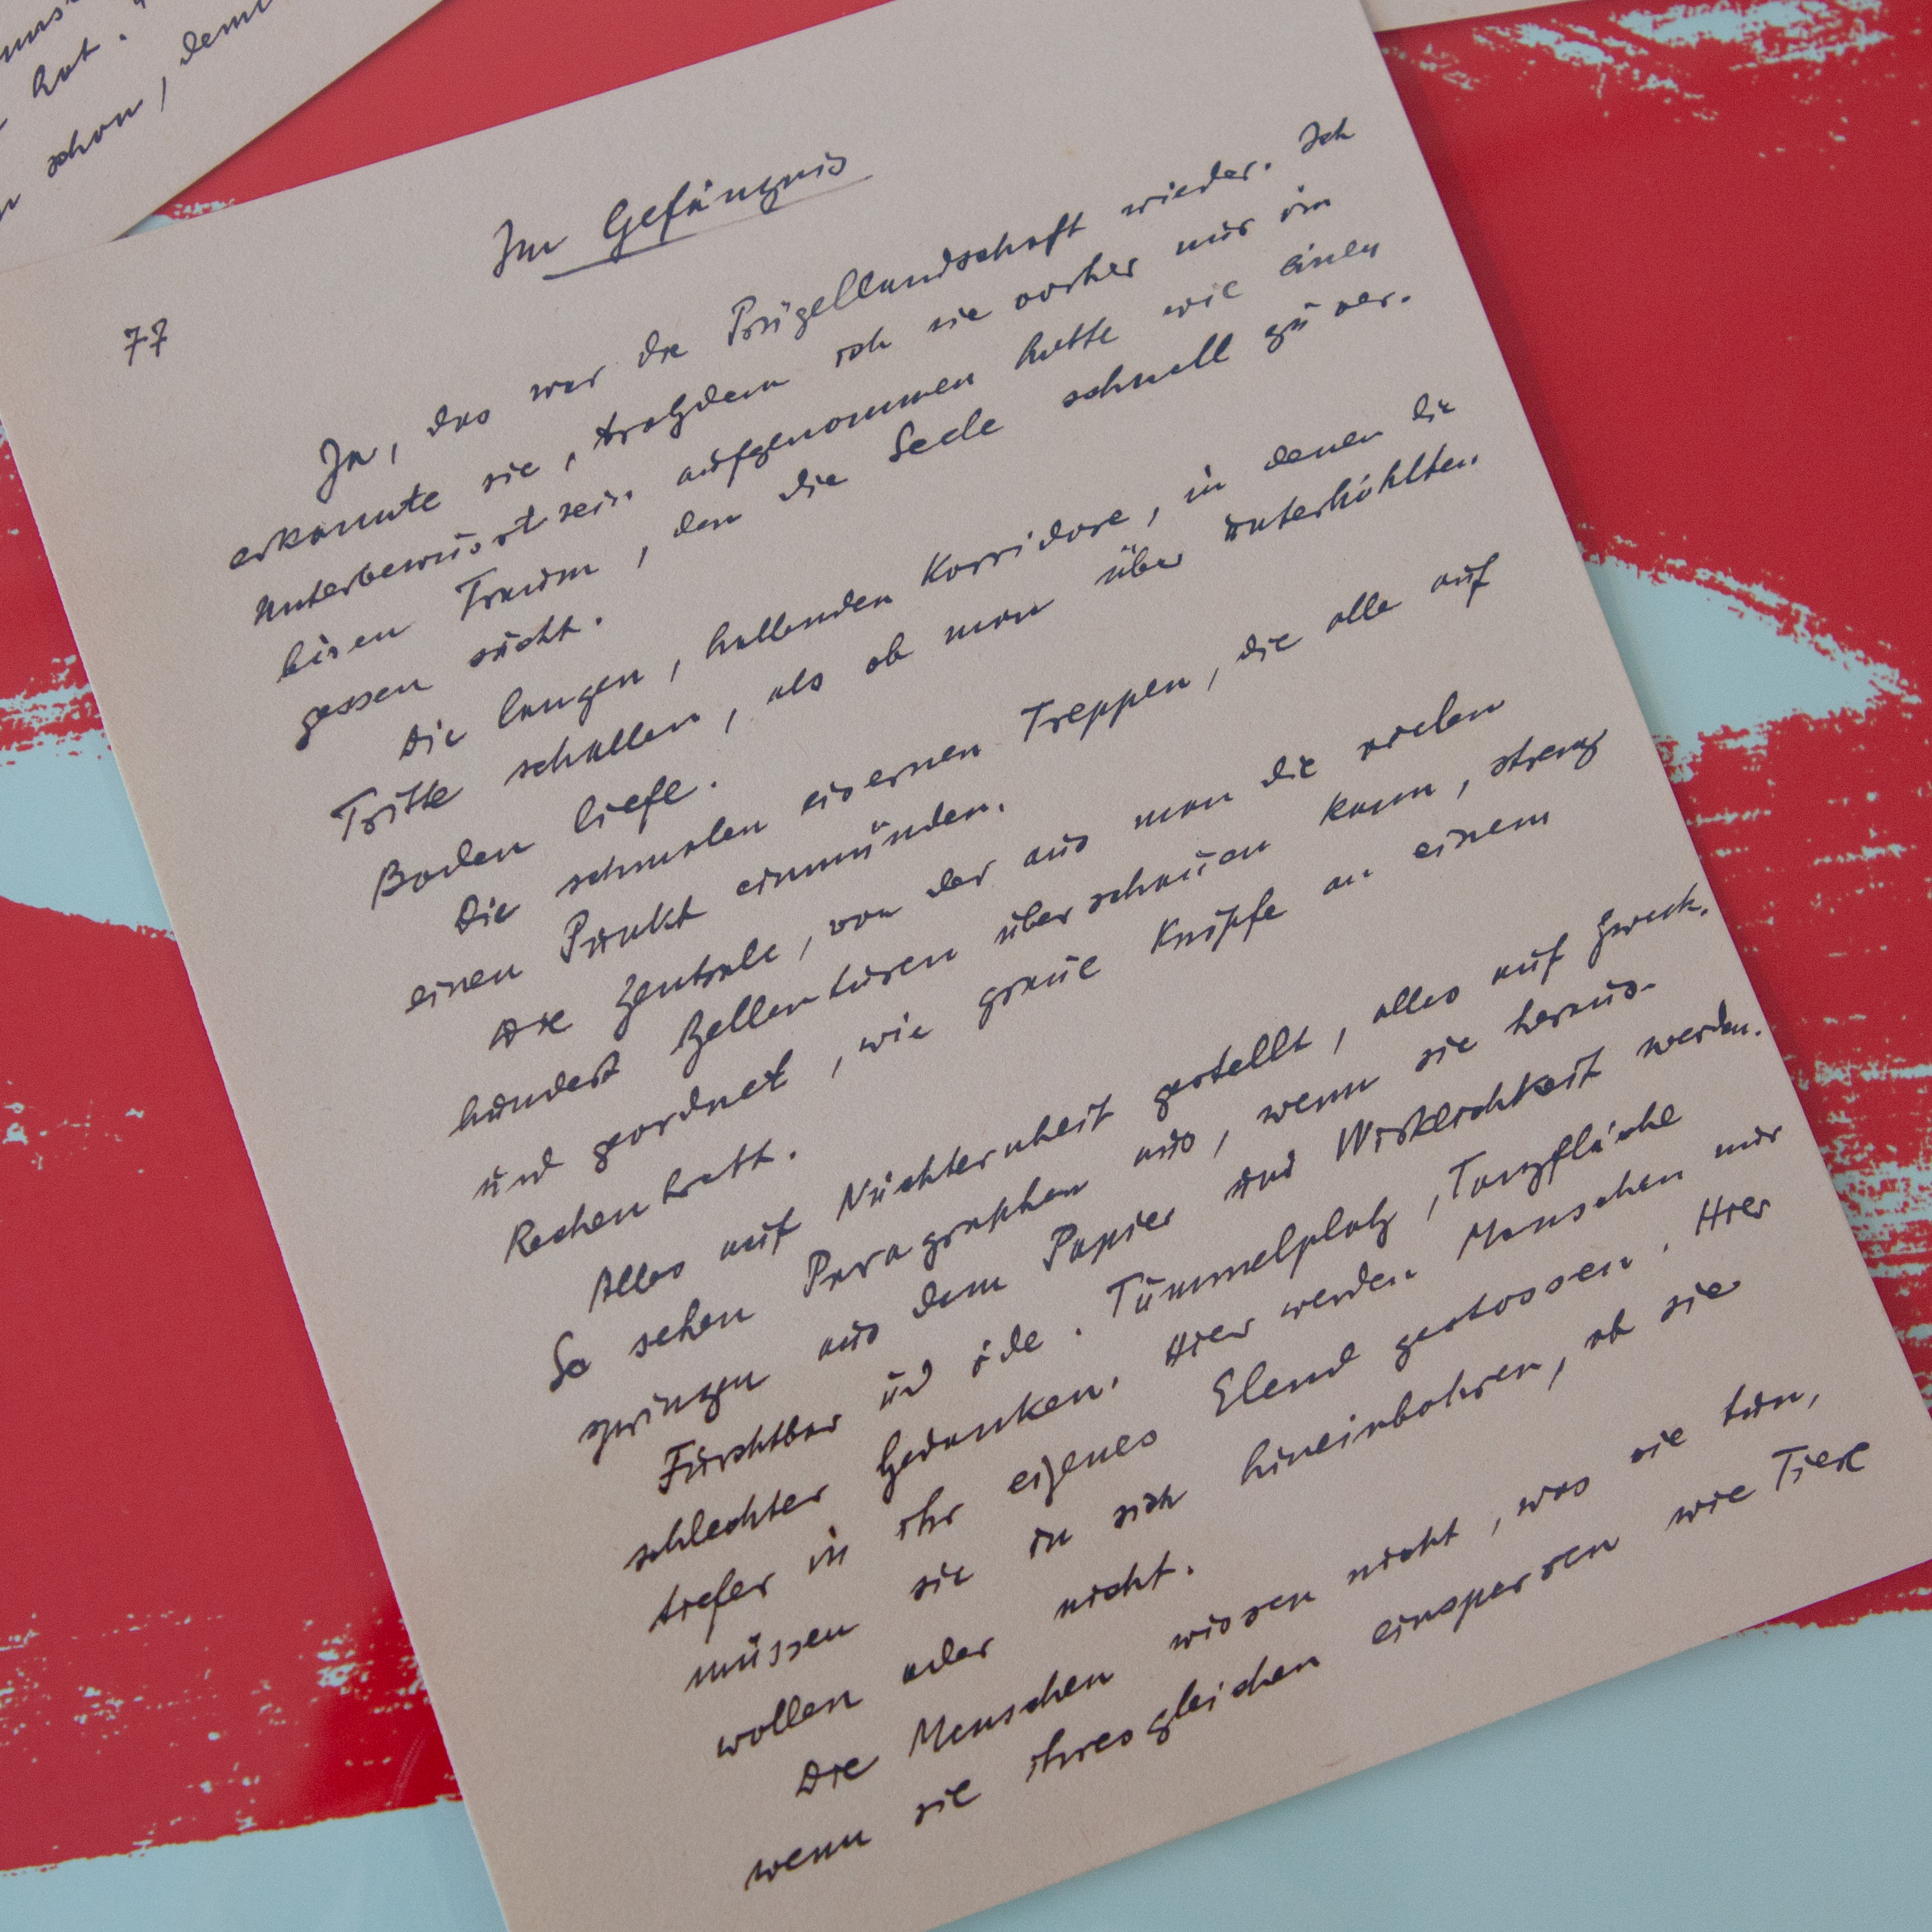 hat.
schon, denn
Im Gefängnis
77
Ja, das war die Prügellandschaft wieder. Ich
erkannte sie, trotzdem ich sie vorher nur im
Unterbewusstsein aufgenommen hatte wie einen
bösen Traum, den die Seele schnell zu ver-
gessen sucht.
Die langen, hallenden Korridore, in denen die
Tritte schallen, als ob man über unterhöhlten
Boden liefe.
Die schmalen eisernen Treppen, die alle auf
einen Punkt einmünden.
Die Zentrale, von der aus man die vielen
hundert Zellentüren überschauen kann, streng
und geordnet, wie graue Knöpfe an einem
Rechenbrett.
Alles auf Nüchternheit gestellt, alles auf Zweck.
So sehen Paragraphen aus, wenn sie heraus-
springen aus dem Papier und Wirklichkeit werden.
Furchtbar und öde. Tummelplatz, Tanzfläche
schlechter Gedanken. Hier werden Menschen nur
tiefer in ihr eigenes Elend gestossen. Hier
müssen sie in sich hineinbohren, ob sie
wollen oder nicht.
Die Menschen wissen nicht, was sie tun,
wenn sie ihresgleichen einsperren wie Tiere